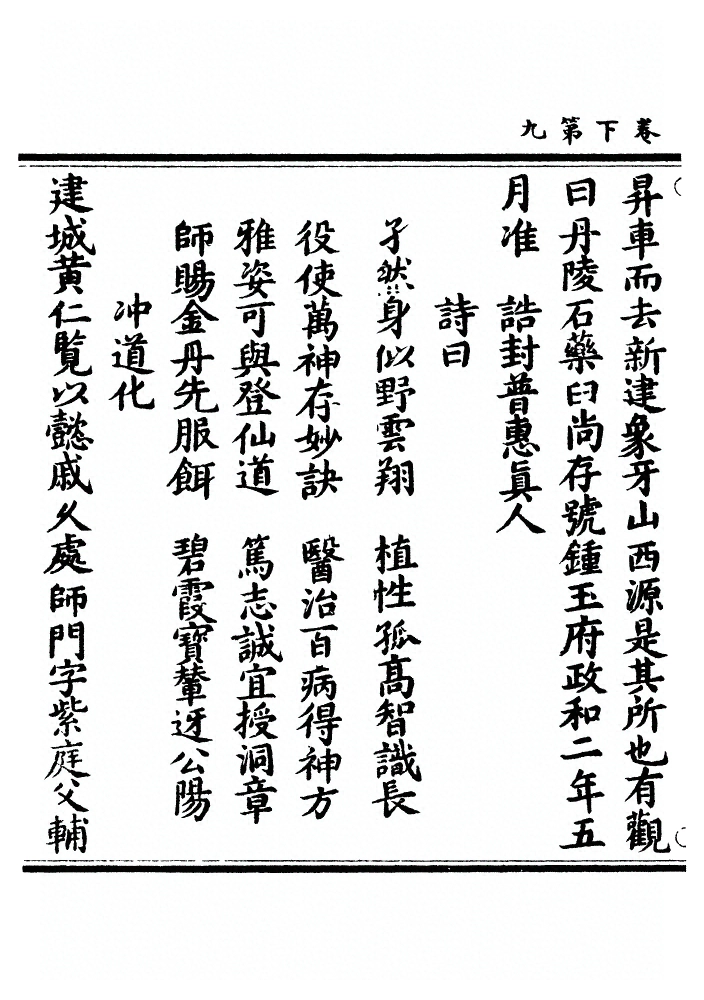 卷下第九
昇車而去新建象牙山西源是其所也有觀
曰丹陵石藥臼尚存號鍾玉府政和二年五
月准　誥封普惠眞人
詩曰
孑然身似野雲翔　植性孤高智識長
役使萬神存妙訣　醫治百病得神方
雅姿可與登仙道　篤志誠宜授洞章
師賜金丹先服餌　碧霞寶輦迓公陽
冲道化
建城黄仁覽以懿戚久處師門字紫庭父輔